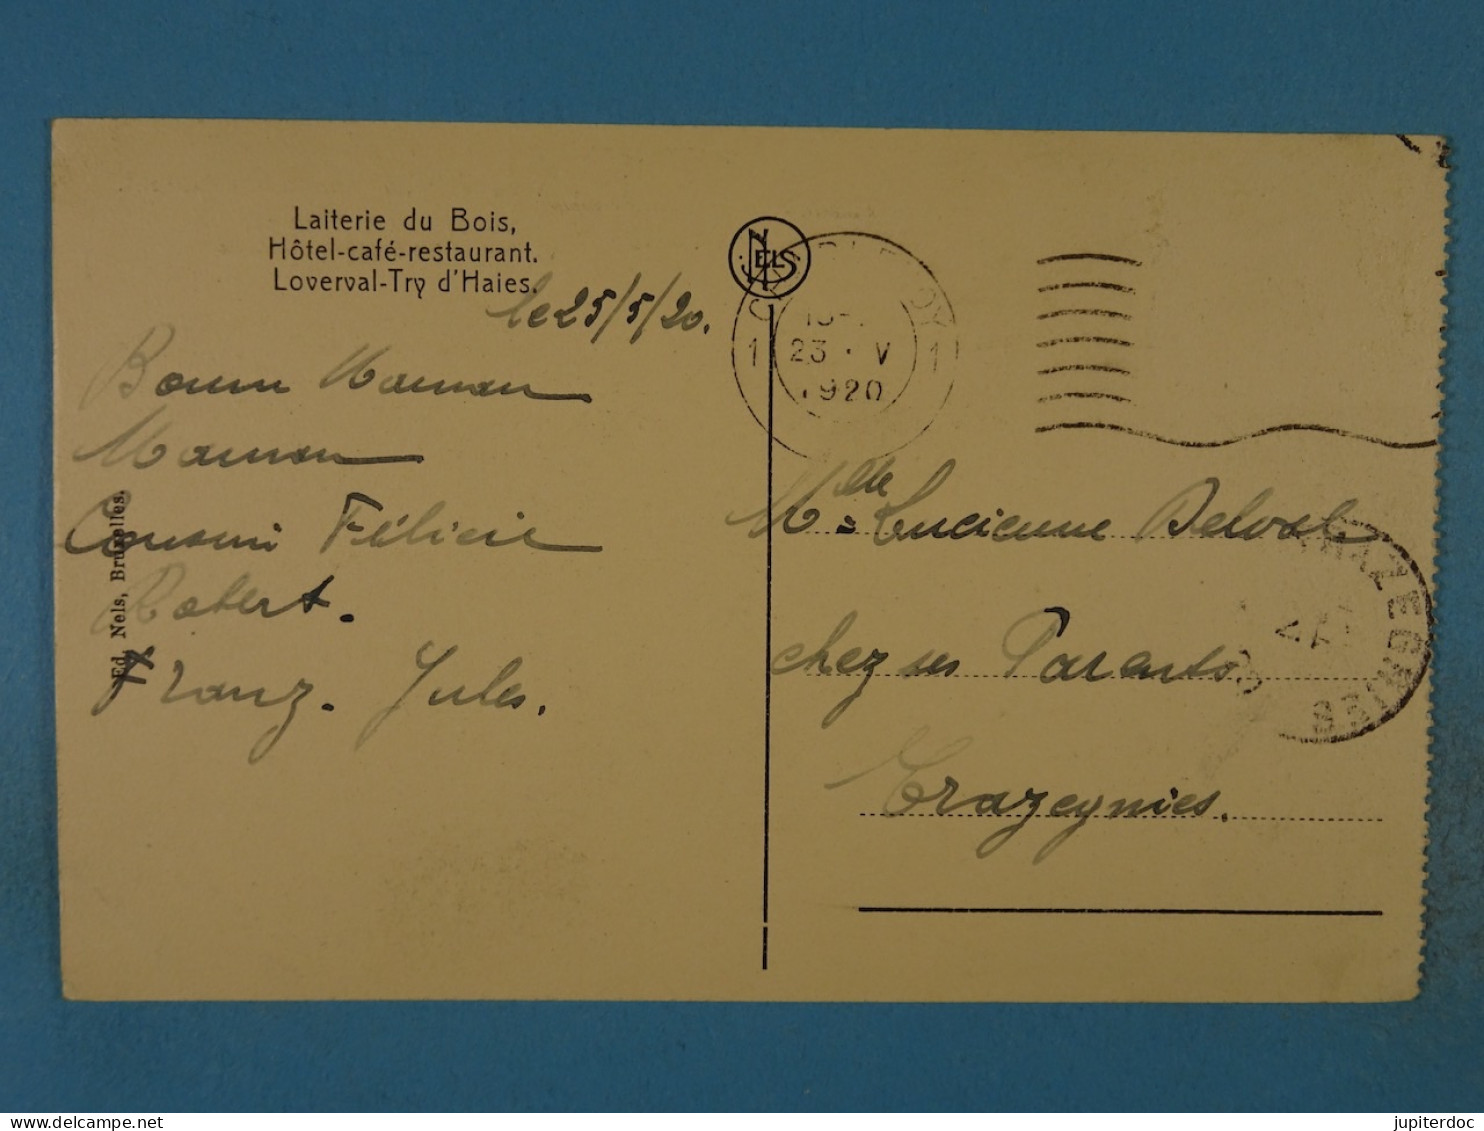 Laiterie du Bois,
Hôtel-café-restaurant.
Loverval-Try d'Haies.
le 25/5/20.
Maman
Maman
Félicie
Robert.
Franz. Jules.
Ed. Nels, Bruxelles.
NELS
1 23 · V 1
1920
Mlle Lucienne Delval
chez ses Parents
Trazegnies.
TRAZEGNIES
jupiterdoc